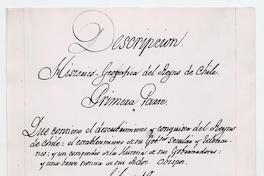 Descripcion
Historico-Geografica del Reyno de Chile.
Primera Parte
Que contiene el descubrimiento y conquista del Reyno
de Chile: el establecimiento de su Gobierno secular y Eclesiastico:
y un compendio de la Historia de sus Gobernadores:
y una breve noticia de sus Sres. Obispos.